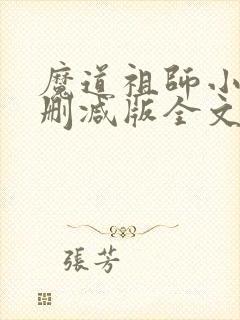 魔道祖師小
刪减版全文
張芳